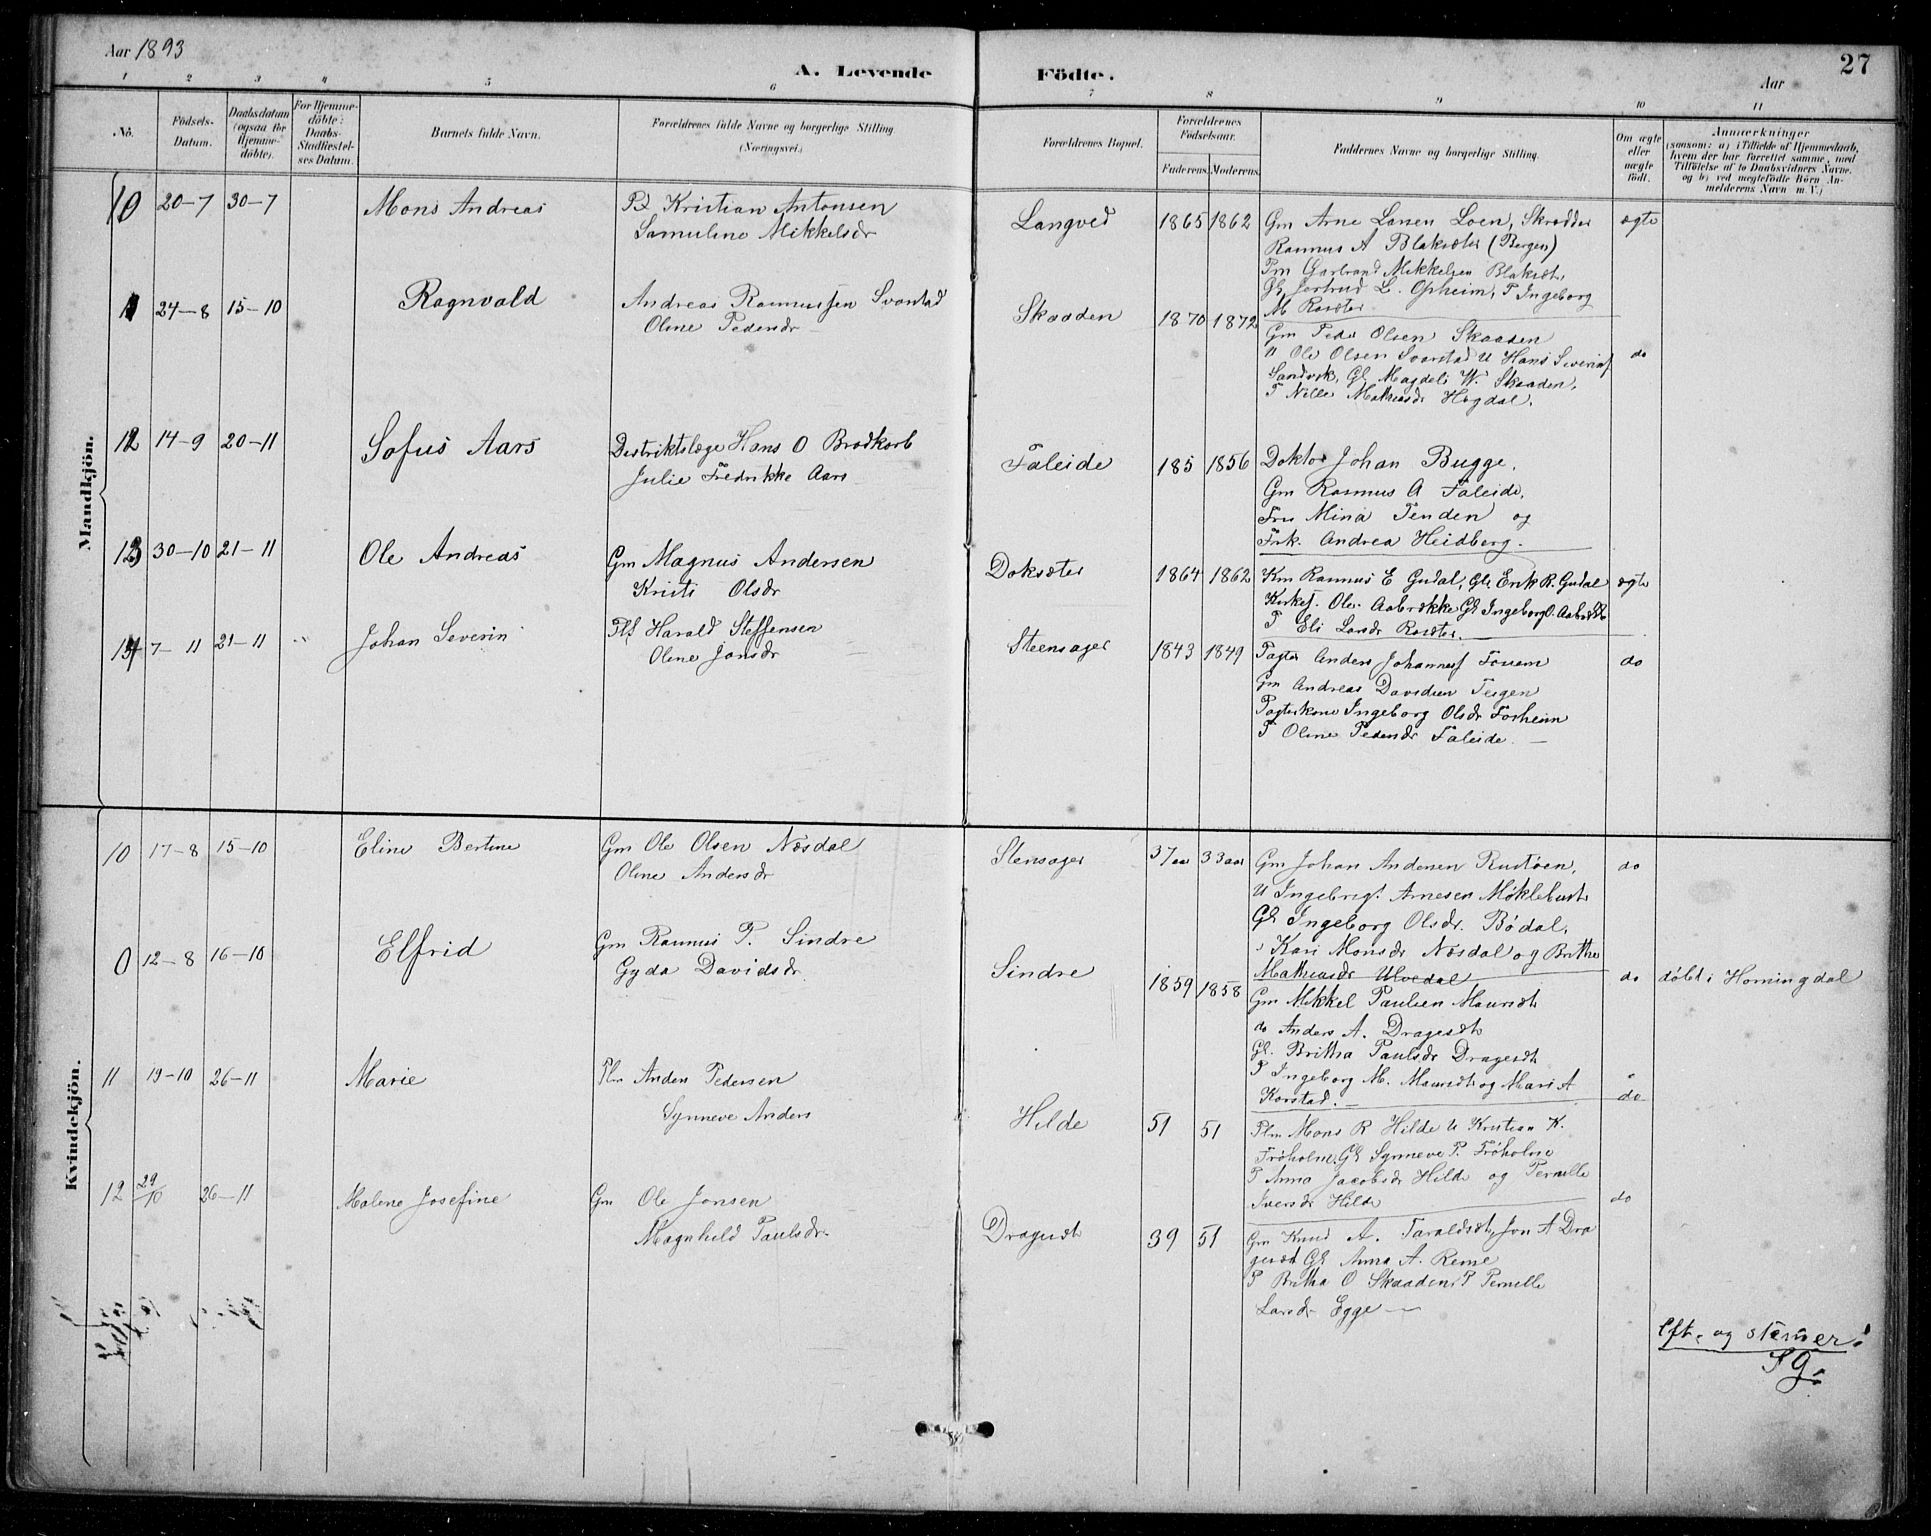 Aar 1893
A. Levende Födte.
Aar
27
1 2 3 4 5 6 7 8 9 10 11
No.
Födsels-Datum.
Daabsdatum (ogsaa for Hjemme-döbte).
For Hjemme-döbte: Daabs-Stadfæstel-ses Datum.
Barnets fulde Navn.
Forældrenes fulde Navne og borgerlige Stilling (Næringsvei.)
Forældrenes Bopæl.
Forældrenes Födselsaar.
Faderens. Moderens.
Faddernes Navne og borgerlige Stilling.
Om ægte eller uægte födt.
Anmærkninger
(saasom: a) i Tilfælde af Hjemmedaab,
hvem der har forrettet samme, med
Tilföielse af to Daabsvidners Navne.
og b) ved uægtefödte Börn An-
melderens Navn m. V.)
Mandkjön.
10 20-7 30-7 Mons Andreas Kristian Antonsen
Samuline Mikkelsdr
Langved 1865 1862 Gm Arne Larsen Loen, Skrædder ægte
Rasmus A Blaksæter (Bergen)
Pm Garbrand Mikkelsen Blaksæt.
Gk Jertrud L. Opheim, P Ingeborg
M Rosæter
11 24-8 15-10 Ragnvald Andreas Rasmussen Svarstad
Oline Pedersdr
Skaaden 1870 1872 Gm Peder Olsen Skaaden
U Ole Olsen Svarstad U Hans Severins do
Sandvik, Gk Magdeli W. Skaaden,
P Nille Mathiasdr Høgdal.
12 14-9 20-11 Sofus Aars Distriktslæge Hans O Brodkorb
Julie Fredrikke Aars
Faleide 185 1856 Doktor Johan Bugge,
Gm Rasmus A Faleide,
Fru Mina Tenden og
Frk. Andrea Heidberg.
13 30-10 21-11 Ole Andreas Gm Magnus Andersen
Kristi Olsdr
Doksæter 1864 1862 Km Rasmus E Gudal, Gk Erik R. Gudal ægte
Kirkes. Ole Aabrække Gk Ingeborg O. Aabrække
P Eli Larsdr Rosæter.
14 7-11 21-11 " Johan Severin Pls Harald Steffensen
Oline Jonsdr
Steensager 1843 1849 Pagter Anders Johannes Fouem do
Gm Andreas Davidsen Teigen
Pagterkone Ingeborg Olsdr Forheim
P Oline Pedersdr Faleide.
Kvindekjön.
10 17-8 15-10 Eline Bertine Gm Ole Olsen Nosdal
Oline Andersdr
Stensager 37 aa 33 aar Gm Johan Andersen Rustøen, do
U Ingebrigt Arnesen Møklebust
Gk Ingeborg Olsdr. Bødal,
" Kari Monsdr Nosdal og Brithe
Mathiasdr Ulvedal
0 12-8 16-10 Elfrid Gm Rasmus P. Sindre
Gyda Davidsdr
Sindre 1859 1858 Gm Mikkel Paulsen Maursæt do døbt i Horningdal
do Anders A. Dragesæt
Gk. Britha Paulsdr Dragesæt
P Ingeborg M. Maursæt og Mari A
Korstad.
11 19-10 26-11 Marie Plm Anders Pedersen
Synneve Anders
Hilde 51 51 Plm Mons R Hilde U Kristian K. do
Frøholm, Gk Synneve P. Frøholm
P Anna Jacobsdr Hilde og Pernille
Iversdr Hilde
12 29/10 26-11 Malene Josefine Gm Ole Jonsen
Magnhild Paulsdr.
Dragesæt 39 51 Gm Knud A. Taraldsæt, Jon A Dra do
gesæt Gk Anna A. Reme
P Britha O Skaaden, P Pernille
Larsdr Egge
Eft. og stemer!
SG.